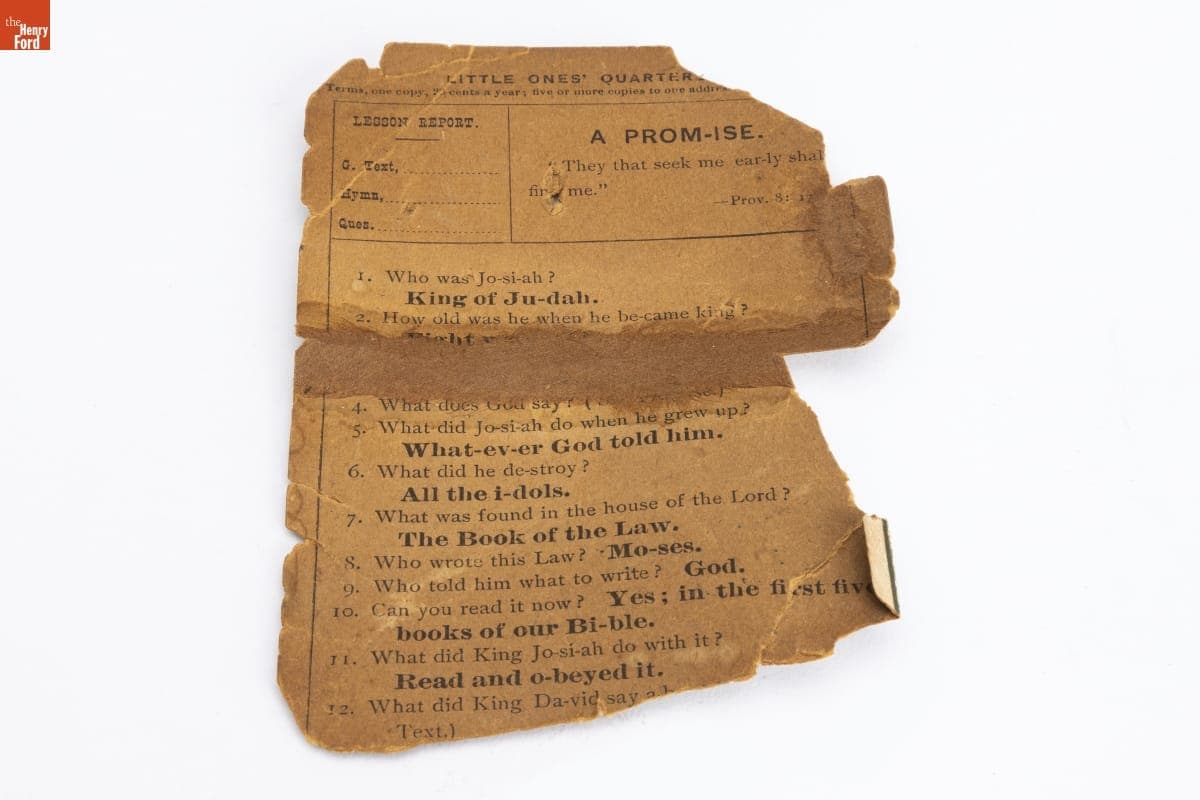 the
Henry
Ford
LITTLE ONES' QUARTER
Terms, one copy, cents a year; five or more copies to one addre
LESSON REPORT.
G. Text,
Hymn,
Ques.
A PROM-ISE.
"They that seek me ear-ly shal
me."
—Prov. 8: 17
1. Who was Jo-si-ah?
King of Ju-dah.
2. How old was he when he be-came king?
Eight
4. What does God say?
5. What did Jo-si-ah do when he grew up?
What-ev-er God told him.
6. What did he de-stroy?
All the i-dols.
7. What was found in the house of the Lord?
The Book of the Law.
8. Who wrote this Law? Mo-ses.
9. Who told him what to write? God.
10. Can you read it now? Yes; in the first five
books of our Bi-ble.
11. What did King Jo-si-ah do with it?
Read and o-beyed it.
12. What did King Da-vid say
Text.)